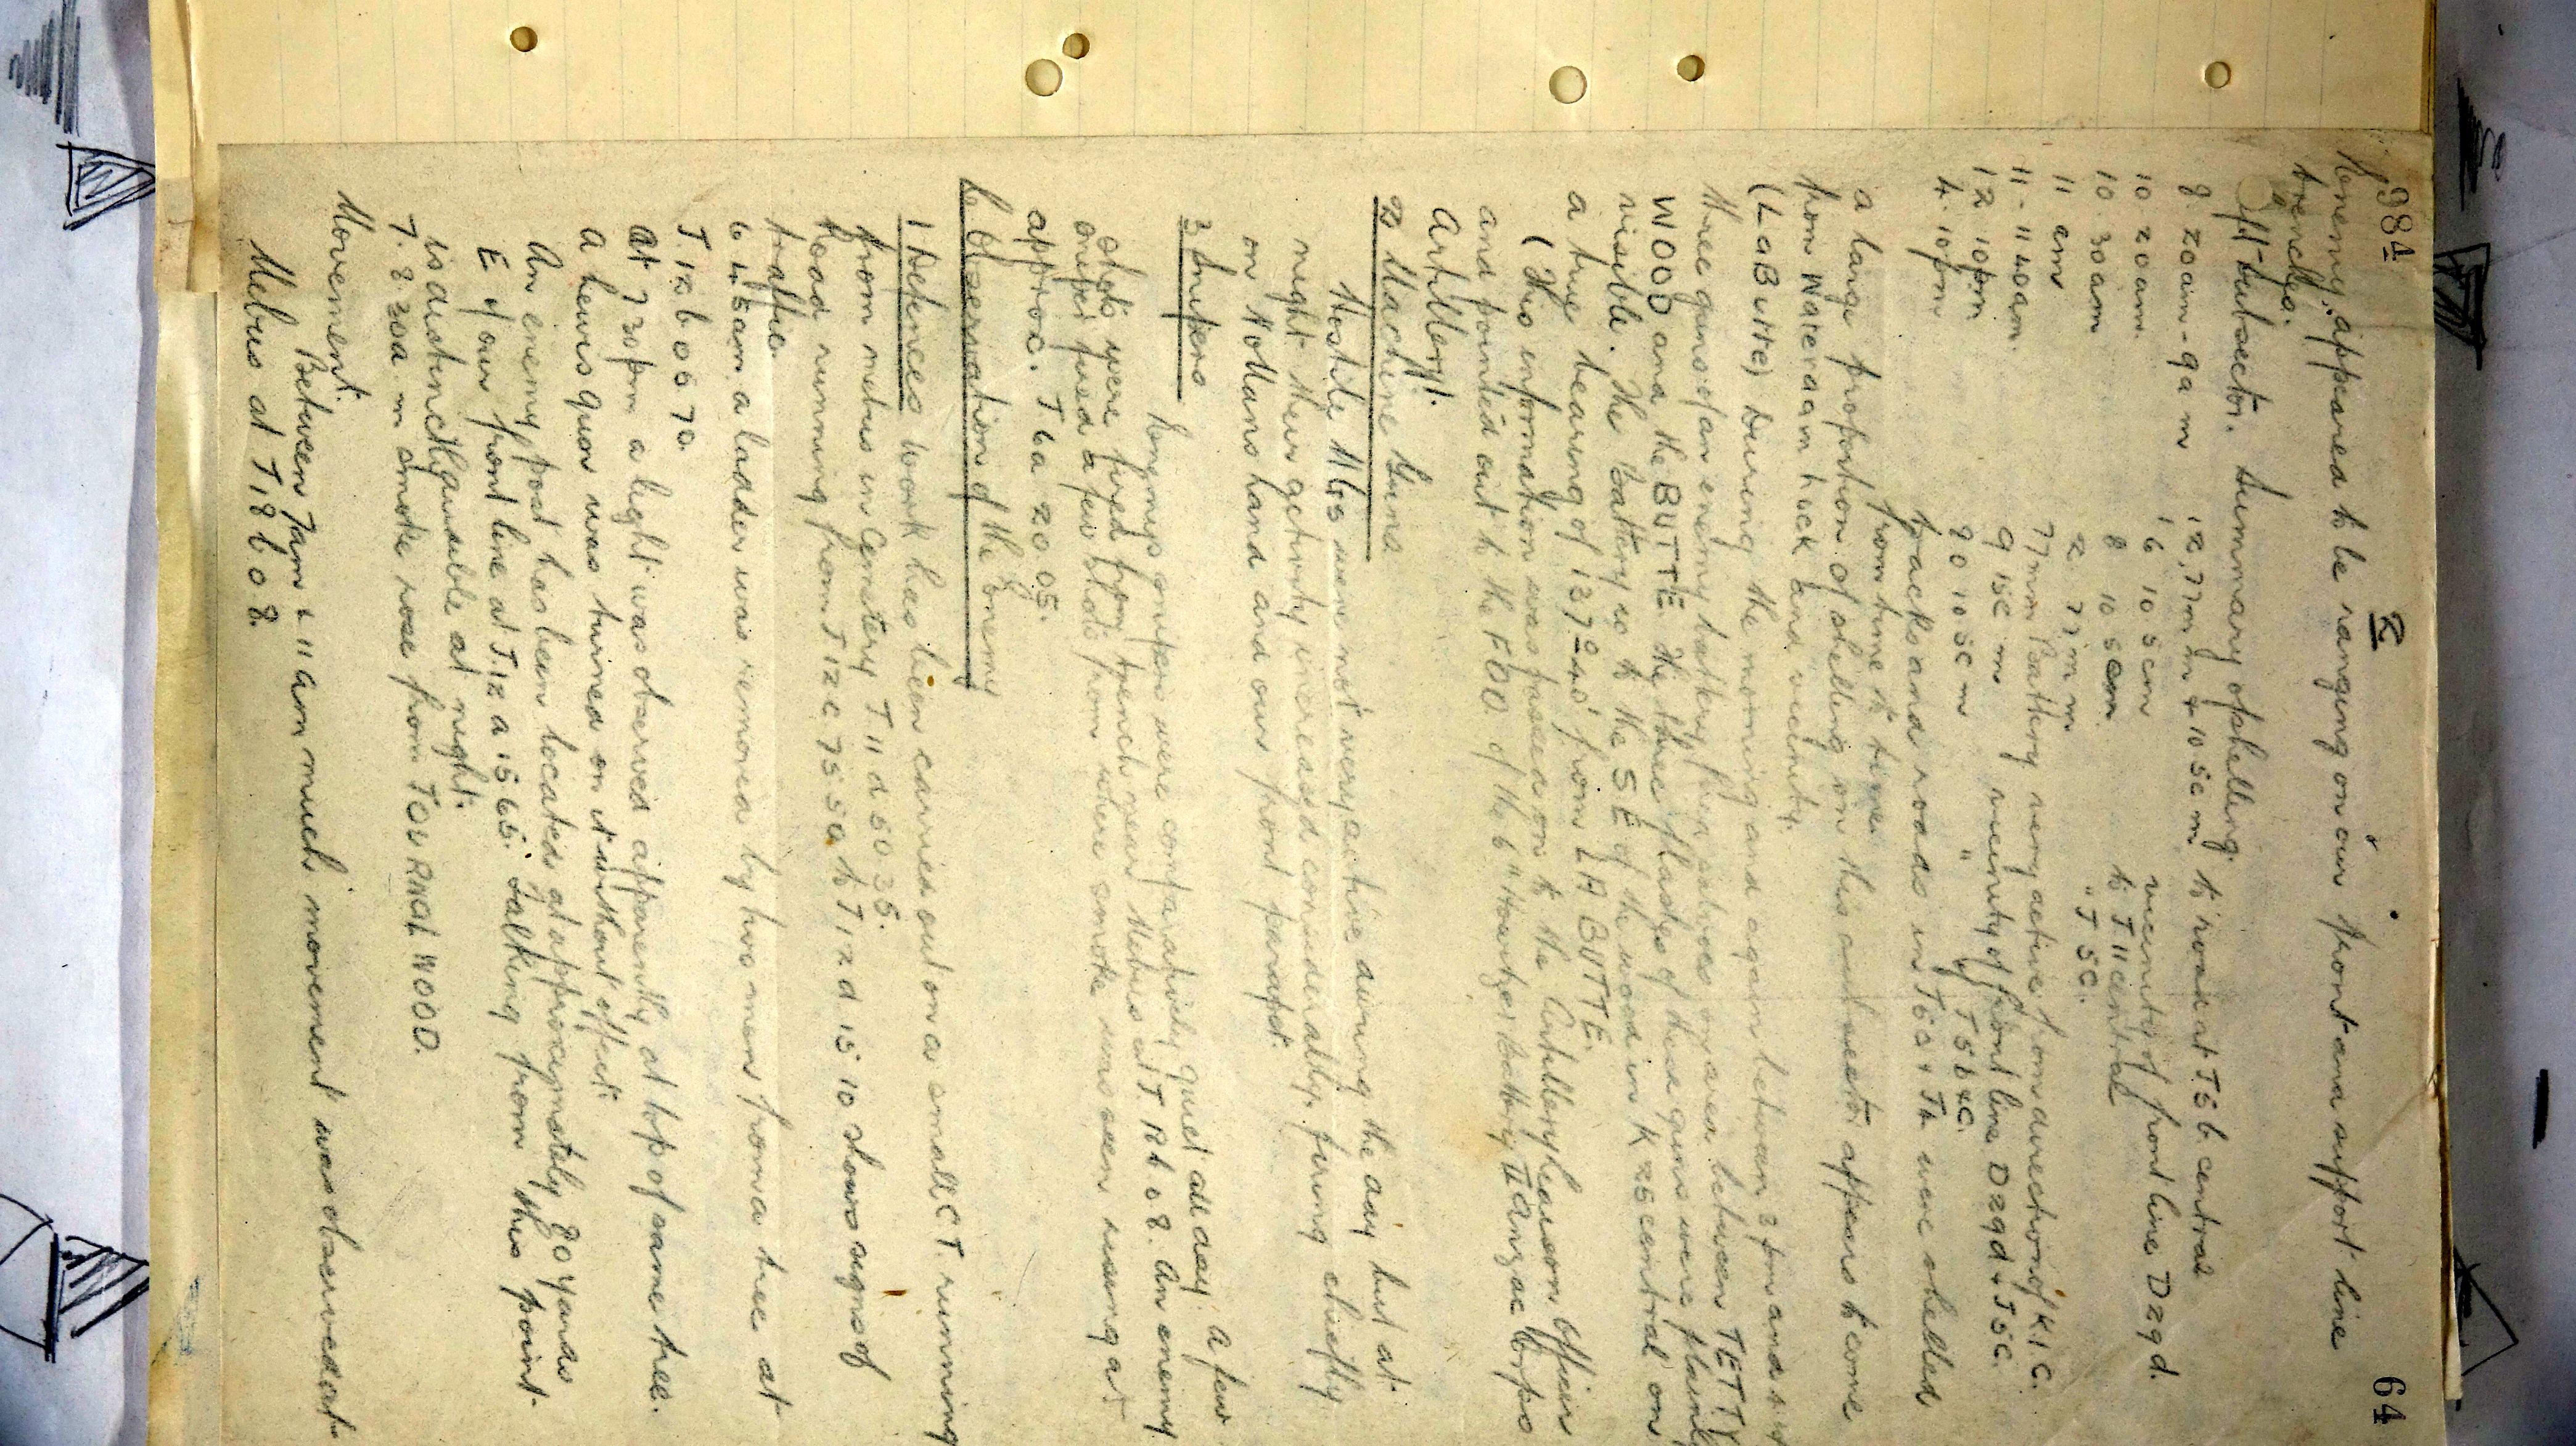 984
2
64
Enemy appeared to be ranging on our front and support line
trenches.
Left Subsector. Summary of shelling.
8.20am - 9am 12, 77mm & 10.5cm to road at T5b central
10 20am. 16 10 5cm vicinity of front line D29d.
10 30am 8 10 5cm to T11 central
11 am 2 77mm " T5c.
11 - 11 40am. 77mm Battery very active from direction of K1C.
12 10pm 9 15cm vicinity of front line D29d & T5c.
4. 10pm 20 10 5cm " of T5b & c.
tracks and roads in T5a & T4 were shelled
from time to time
a large proportion of shelling on this subsector appears to come
from Waterdamhoek and vicinity.
(La Butte) During the morning and again between 3pm and 5
three guns of an enemy battery fired salvoes on area between TETTY
WOOD and the BUTTE The three flashes of these guns were plainly
visible. The battery is to the SE of the wood in K25 central on
a true bearing of 137° 40' from LA BUTTE.
(This information was passed on to the Artillery liaison Officer
and pointed out to the FOO of the 6" Howitzer Battery II Anzac Corps
Artillery).
2) Machine Guns.
Hostile MGs were not very active during the day but at
night their activity increased considerably firing chiefly
on Nomans land and our front parapet.
3 Snipers
Enemys snipers were comparatively quiet all day. A few
shots were fired from trench near Mebus at T18b08. An enemy
sniper fired a few shots from where smoke was seen rising at
approx. T6a 20 05.
6 Observation of the enemy
1 Defences Work has been carried out on a small CT running
from mebus in Cemetery T11 d 50 35.
Road running from T12c 75 50 to T12d 15 10 shows signs of
traffic.
6 45am a ladder was removed by two men from a tree at
T.12b 05 70.
At 7 30pm a light was observed apparently at top of same tree.
A Lewis gun was turned on it without effect.
An enemy post has been located at approximately 80 yards
E of our front line at T.12 a 15 65. Talking from this point
is distinctly audible at night.
7. 8 30am smoke rose from TOURNAI WOOD.
Movement.
Between 7am & 11 am much movement was observed at
Mebus at T18b08.